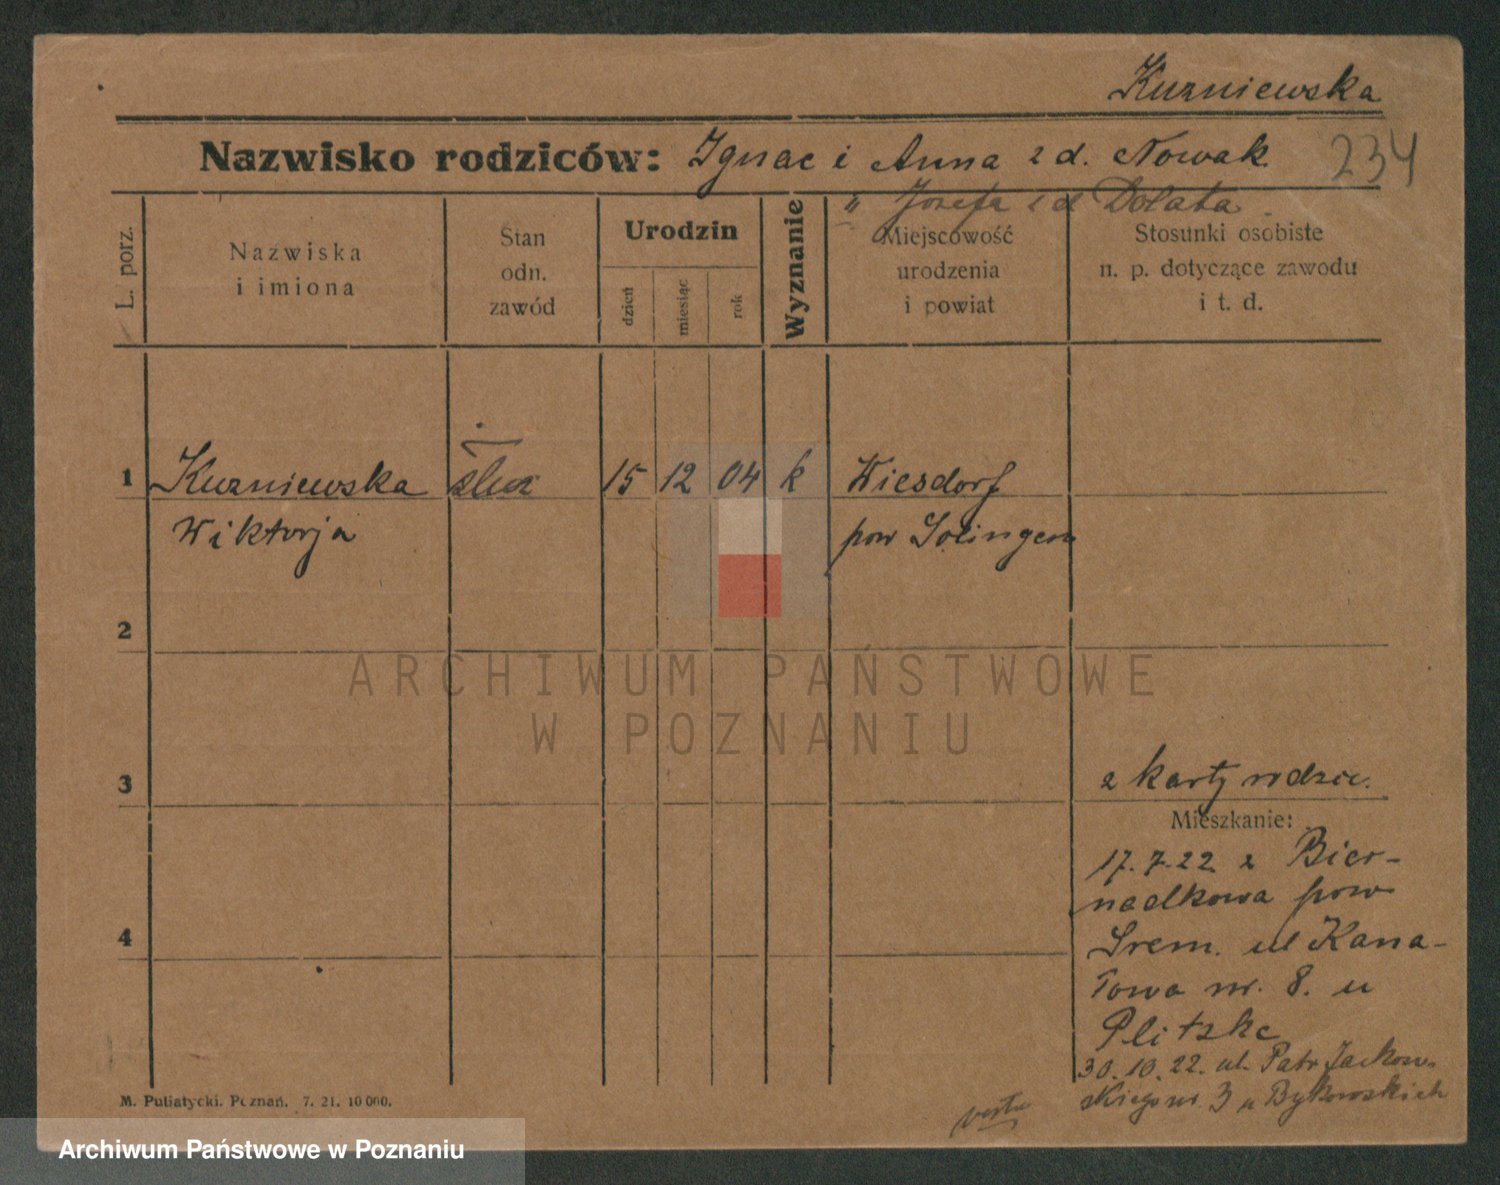 Kuzniewska
Nazwisko rodziców: Ignac i Anna z d. Nowak
234
" Józefa z d Dolata
L. porz.
Nazwiska
i imiona
Stan
odn.
zawód
Urodzin
dzień
miesiąc
rok
Wyznanie
Miejscowość
urodzenia
i powiat
Stosunki osobiste
n. p. dotyczące zawodu
i t. d.
1 Kuzniewska służ 15 12 04 k Wiesdorf
Wiktorja pow Solingen
2
ARCHIWUM PAŃSTWOWE
W POZNANIU
3
z karty rodzic.
Mieszkanie:
17.7.22 z Bier-
nadkowa pow
4
Srem. ul Kana-
łowa nr. 8. u
Plitzke
30.10.22. ul. Patr Jackow-
skiego nr 3 u Bykowskich
verte
M. Putiatycki. Poznań. 7. 21. 10 000.
Archiwum Państwowe w Poznaniu